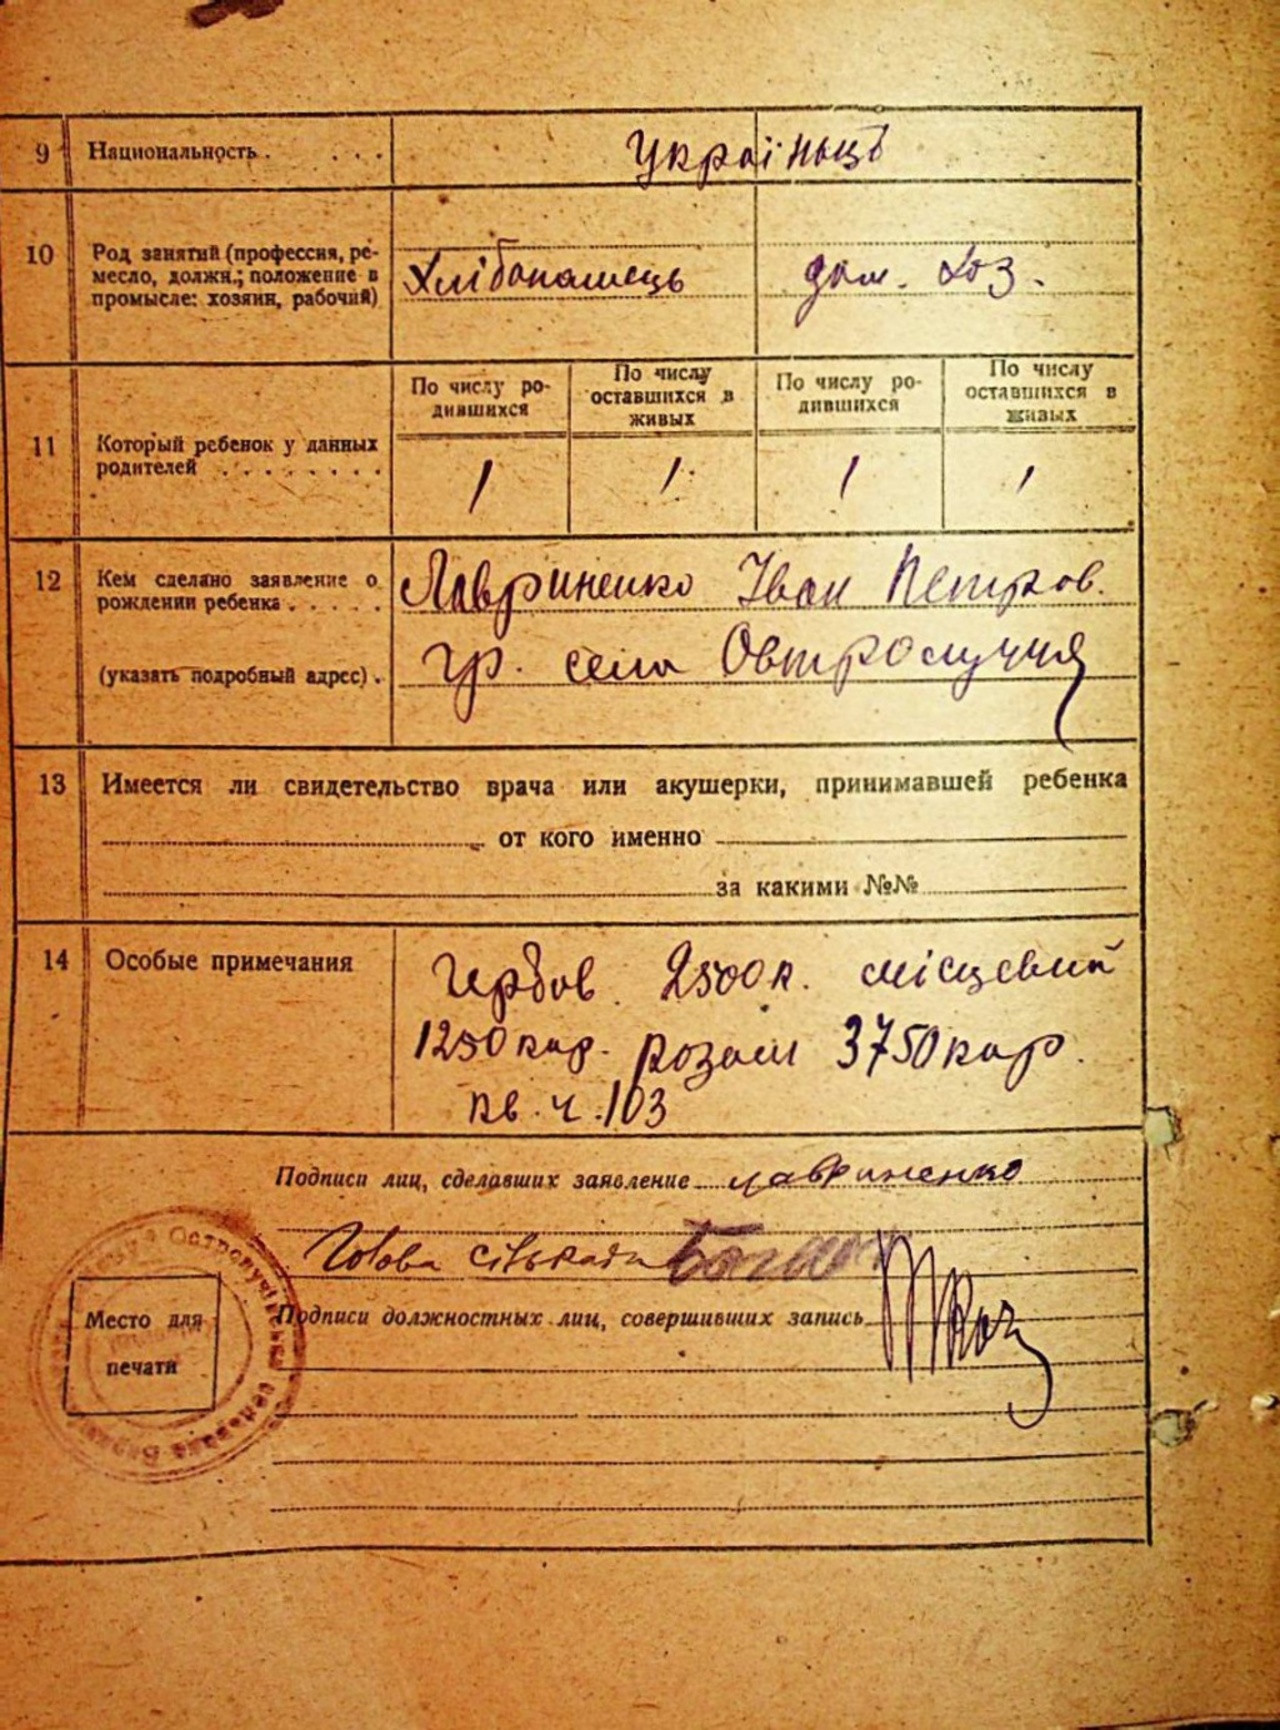 9 Национальность . . . . Українці
10 Род занятий (профессия, ре-
месло, должн.; положение в
промысле: хозяин, рабочий)
Хлібопашець дом. хоз.
По числу ро-
дившихся
По числу
оставшихся в
живых
По числу ро-
дившихся
По числу
оставшихся в
живых
11 Который ребенок у данных
родителей . . . . . . . .
1 1 1 1
12 Кем сделано заявление о
рождении ребенка . . . . .
(указать подробный адрес) .
Лавриненко Іван Петров.
гр. села Овтролуччя
13 Имеется ли свидетельство врача или акушерки, принимавшей ребенка
от кого именно
за какими №№
14 Особые примечания
Гербов. 2500 к. місцевий
1250 кар. розом 3750 кар.
кв. ч. 103
Подписи лиц, сделавших заявление лавриненко
Голова сільради
Подписи должностных лиц, совершивших запись
Место для
печати